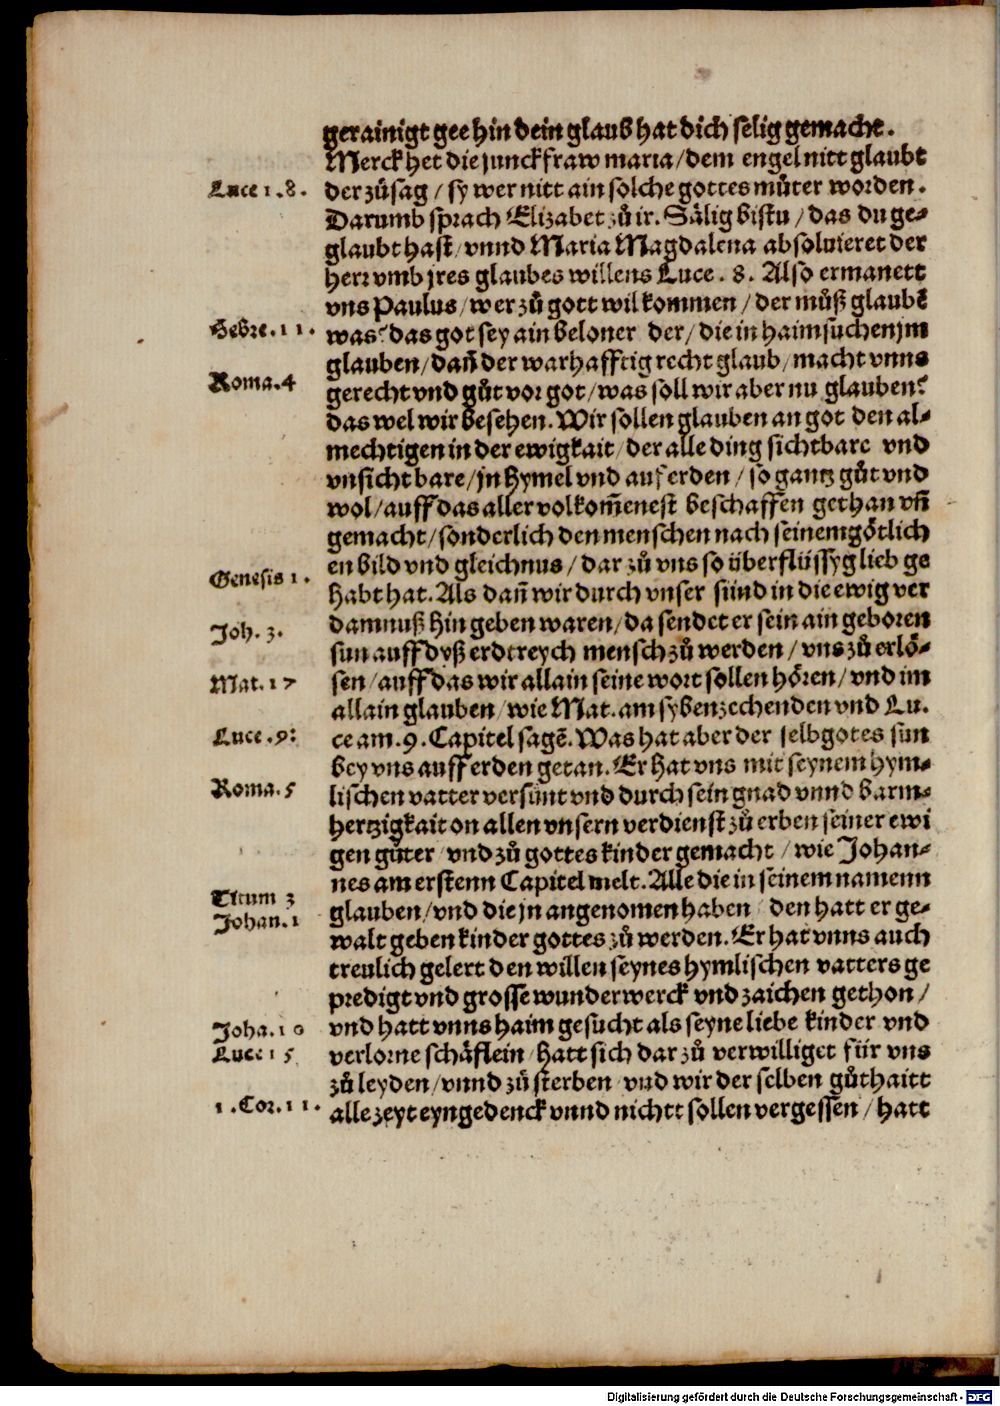 gerainigt gee hin dein glaub hat dich selig gemacht.
Merck het die junckfraw maria/dem engel nitt glaubt
Luce 1.8.
der zůsag/ sy wer nitt ain solche gottes můter worden.
Darumb sprach Elizabet zů ir. Sälig bistu/das du ge-
glaubt hast/vnnd Maria Magdalena absoluieret der
herr vmb jres glaubes willens Luce.8. Also ermanett
vns Paulus/wer zů gott wil kommen/der můß glaubē
Hebre.11.
was? das got sey ain beloner der/die in haimsuchen jm
glauben/dañ der warhafftig recht glaub/macht vnns
Roma.4
gerecht vnd gůt vor got/was soll wir aber nu glauben?
das wel wir besehen. Wir sollen glauben an got den al-
mechtigen in der ewigkait/der alle ding sichtbare vnd
vnsichtbare/jn hymel vnd auf erden/so gantz gůt vnd
wol/auff das aller volkom̃enest beschaffen gethan vñ
gemacht/sonderlich den menschen nach seinem götlich
en bild vnd gleichnus/dar zů vns so überflüssyg lieb ge
Genesis 1.
habt hat. Als dañ wir durch vnser sünd in die ewig ver
damnuß hin geben waren/da sendet er sein ain geboren
Joh.3.
sun auff dyß erdtreych mensch zů werden/vns zů erlö-
sen/auff das wir allain seine wort sollen hören/vnd im
Mat.17
allain glauben/wie Mat. am sybenzechenden vnd Lu.
ce am.9. Capitel sagē. Was hat aber der selb gotes sun
Luce.9:
bey vns auff erden getan. Er hat vns mit seynem hym-
lischen vatter versünt vnd durch sein gnad vnnd barm-
Roma.5
hertzigkait on allen vnsern verdienst zů erben seiner ewi
gen gůter/vnd zů gottes kinder gemacht/wie Johan-
nes am erstenn Capitel melt. Alle die in seinem namenn
Titum 3
glauben/vnd die jn angenomen haben/den hatt er ge-
Johan.1
walt geben kinder gottes zů werden. Er hat vnns auch
treulich gelert den willen seynes hymlischen vatters ge
predigt vnd grosse wunderwerck vnd zaichen gethon/
vnd hatt vnns haim gesucht als seyne liebe kinder vnd
Joha.10
verlorne schäflein/hatt sich dar zů verwilliget für vns
Luce 15
zů leyden/vnnd zů sterben/vnd wir der selben gůthaitt
alle zeyt eyngedenck vnnd nichtt sollen vergessen/hatt
1.Cor.11.
Digitalisierung gefördert durch die Deutsche Forschungsgemeinschaft - DFG